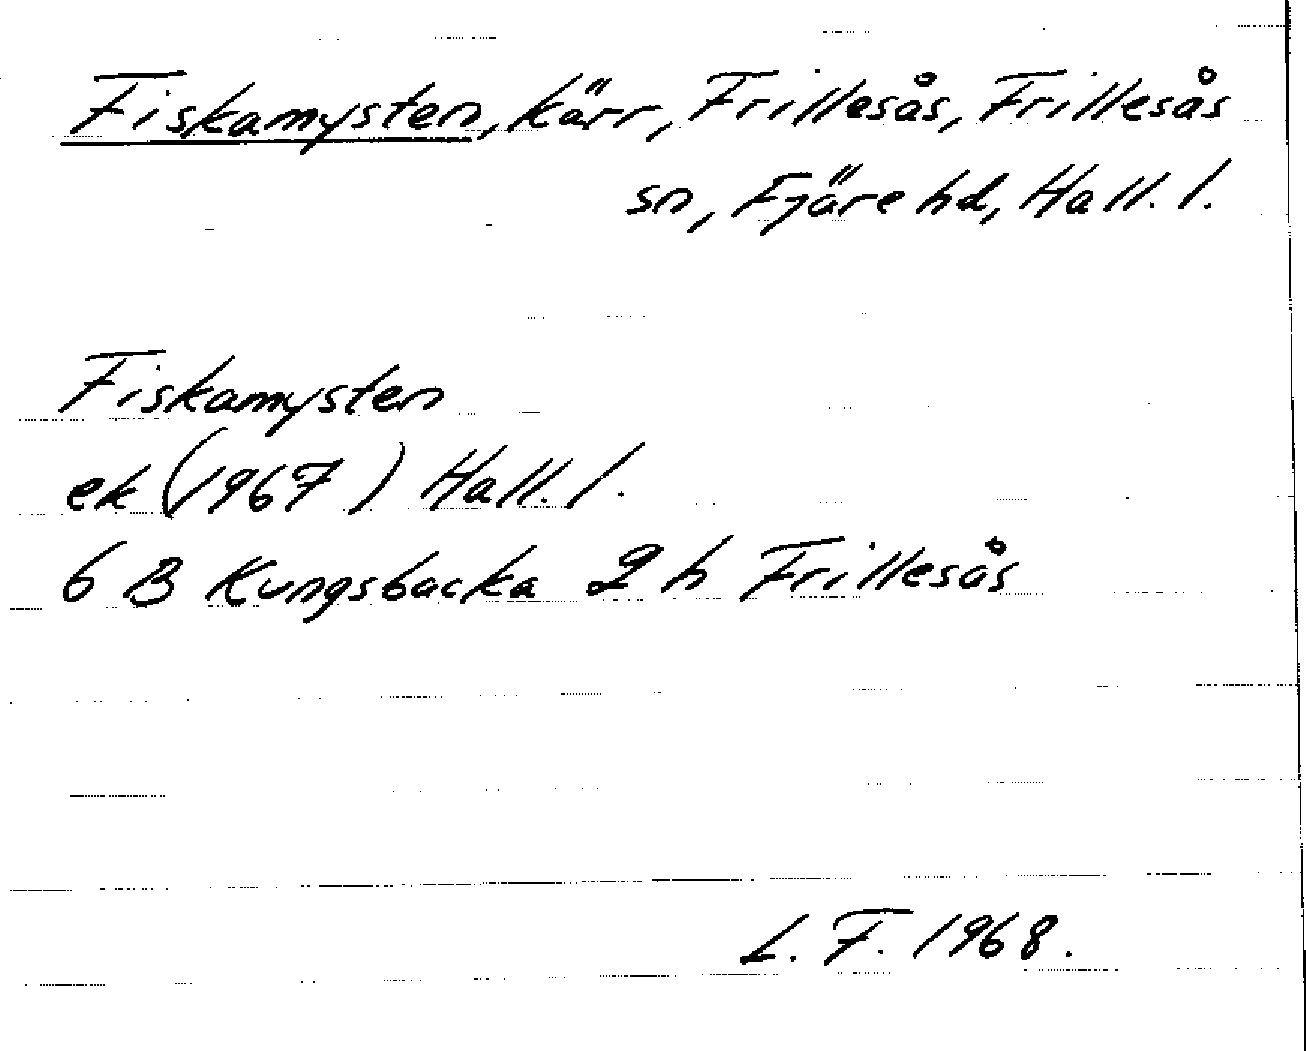 Fiskamysten, kärr, Frillesås, Frillesås
sn, Fjäre hd, Hall. l.
Fiskamysten
ek (1967) Hall. l.
6 B Kungsbacka 2 h Frillesås
L. F. 1968.